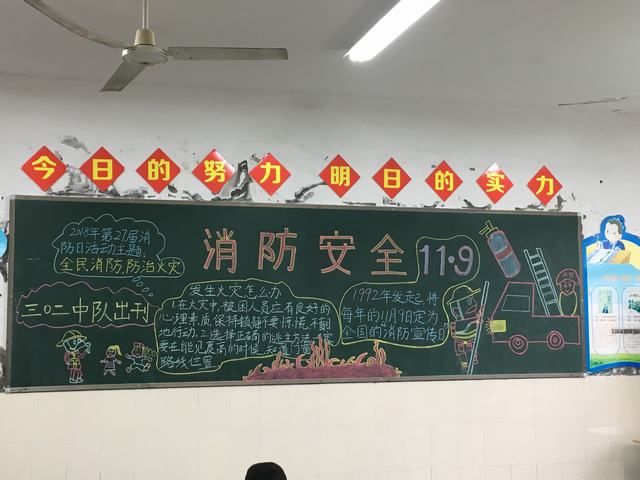 今日的努力 明日的实力
2018年第27届消
防日活动主题:
全民消防,防治火灾
三〇二中队出刊
消防安全 11·9
发生火灾怎么办
1.在火灾中,被困人员应有良好的
心理素质,保持镇静不要惊慌,不制
地行动,2.选择正确的逃生方法,
要在能见度高的时候,知道门窗
路线位置
1992年发起,将
每年的11月9日定为
全国的消防宣传日